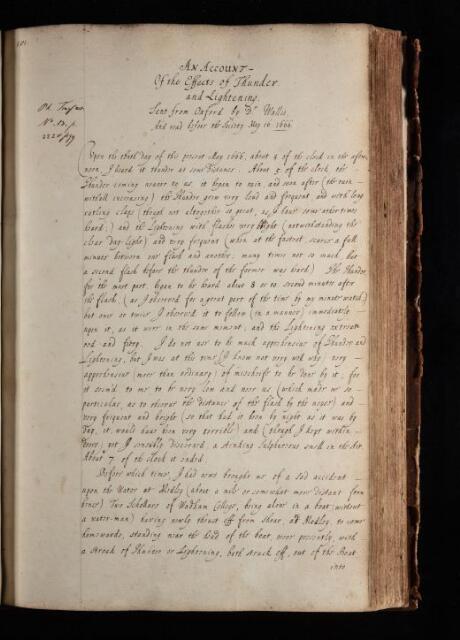 101.
An Account
Of the Effects of Thunder
and Lightening,
Sent from Oxford by Dr. Wallis.
And read before the Society May 16. 1666.
Ph. Trans.
No. 13. p.
222.
Upon the tenth day of this present May 1666. about 4 of the clock in the after
noon, I heard it thunder at some distance. About 5 of the clock, the
Thunder coming nearer to us, it began to rain, and soon after (the rain
withall increasing) the Thunder grew very loud and frequent and with long
ratling claps (though not altogether so great, as I have some other times
heard;) and the Lightening with flashes very bright (notwithstanding the
clear day-light) and very frequent (when at the fastest, scarce a full
minute between one flash and another; many times not so much, but
a second flash before the thunder of the former was heard.) The Thunder,
for the most part, began to be heard about 8 or 10 seconds minutes after
the flash, (as I observed for a great part of the time by my minute watch;)
but once or twice I observed it to follow (in a manner) immediately
upon it, as it were in the same moment, and the Lightening extream
red and fiery. I do not use to be much apprehensive of Thunder and
Lightening, but I was at this time (I know not very well why) very
apprehensive (more than ordinary) of mischiefe to be done by it; for
it seem'd to me to be very low and near us (which made me so
particular, as to observe the distance of the flash by the noyse) and
very frequent and bright (so that had it been by night as it was by
Day, it would have been very terrible) and (though I kept within
doors) yet I sensibly discerned, a stinking Sulphurious smell in the Air.
About 7. of the clock it ended.
Before which time, I had news brought me of a sad accident
upon the Water at Medley (about a mile or somewhat more distant from
hence.) Two Schollars of Wadham College, being alone in a boat (without
a water-man) having newly thrust off from shoar, at Medley, to come
homewards, standing near the End of the boat, were presently, with
a stroak of Thunder or Lightening, both struck off, out of the Boat
into